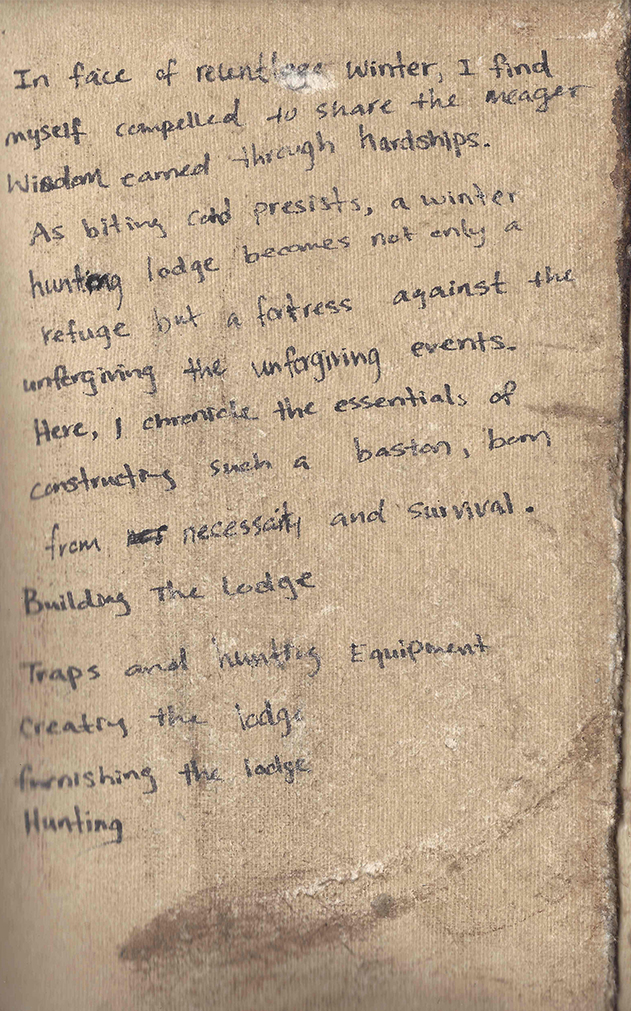 In face of relentless Winter, I find
myself compelled to share the meager
Wisdom earned through hardships.
As biting cold presists, a winter
hunting lodge becomes not only a
refuge but a fortress against the
unforgiving the unforgiving events.
Here, I chronicle the essentials of
constructing such a bastan, born
from necessaity and survival.
Building The lodge
Traps and hunting Equipment
Creating the lodge
furnishing the lodge
Hunting